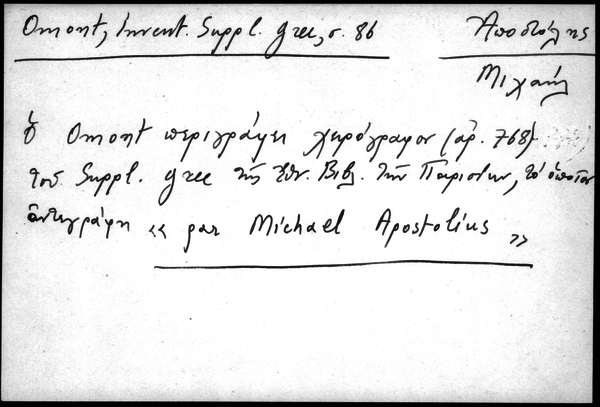 Omont, Invent. Suppl. grec, σ. 86
Ἀποστόλης
Μιχαήλ
ὁ Omont περιγράφει χειρόγραφον (ἀρ. 768)
τοῦ Suppl. grec τῆς Ἐθν. Βιβλ. τῶν Παρισίων, τὸ ὁποῖον
ἀντεγράφη « par Michael Apostolius »